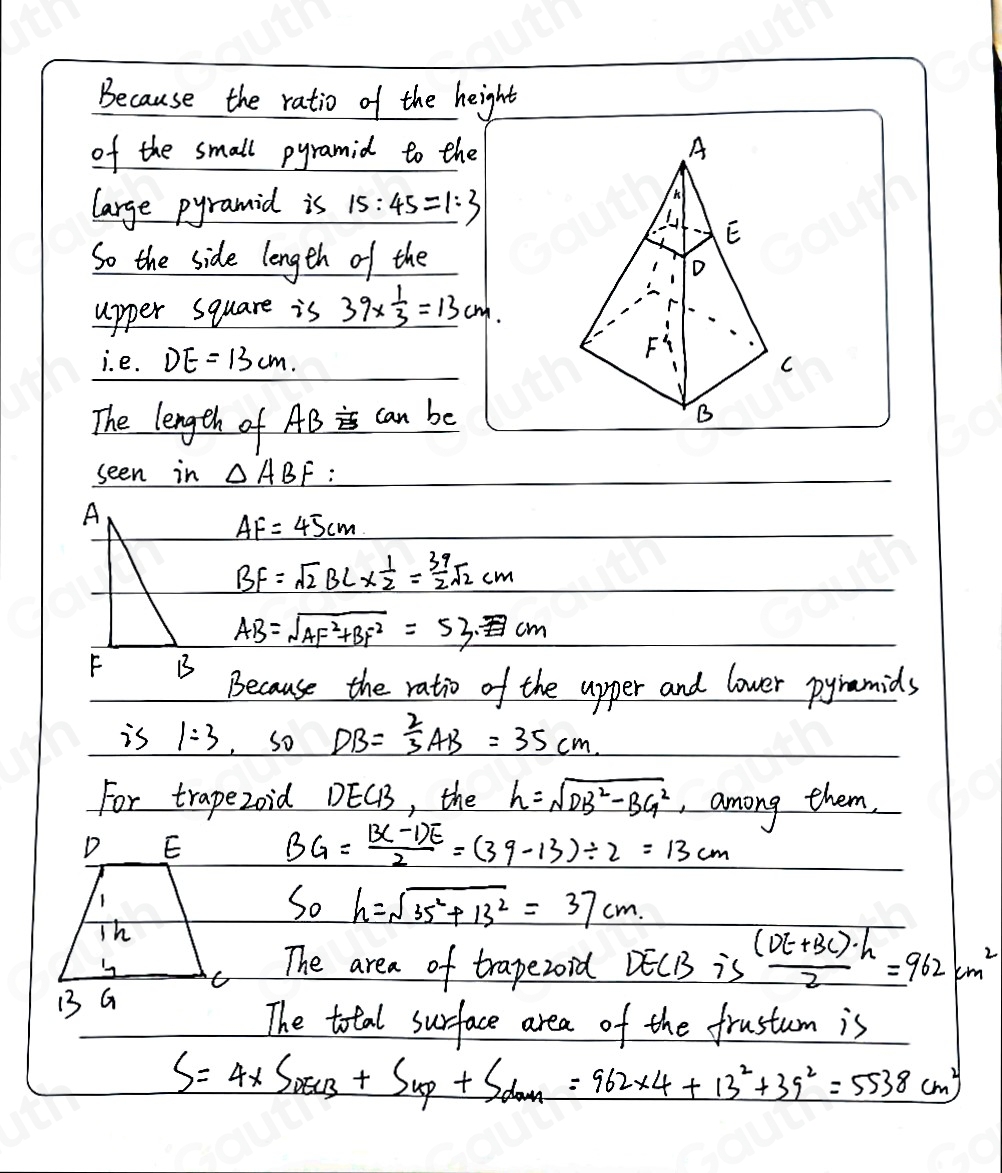 Because the ratio of the height
of the small pyramid to the
large pyramid is 15:45=1:3
So the side length of the
upper square is 39×1/3=13cm.
i.e. DE=13cm.
A
h
E
D
F
C
B
The length of AB can be
seen in △ABF:
A
F
B
AF=45cm.
BF=√2 BC×1/2=39/2√2 cm
AB=√(AF²+BF²) = 53. cm
Because the ratio of the upper and lower pyramids
is 1:3, so DB=2/3AB = 35cm.
For trapezoid DECB, the h=√(DB²-BG²), among them,
D E
h
B G C
BG = (BC-DE)/2 = (39-13)÷2 = 13cm
So h=√(35²+13²) = 37cm.
The area of trapezoid DECB is (DE+BC)·h/2 =962 cm²
The total surface area of the frustum is
S= 4× SDECB + Sup + Sdown = 962×4 + 13²+39² = 5538 cm²
Gauth